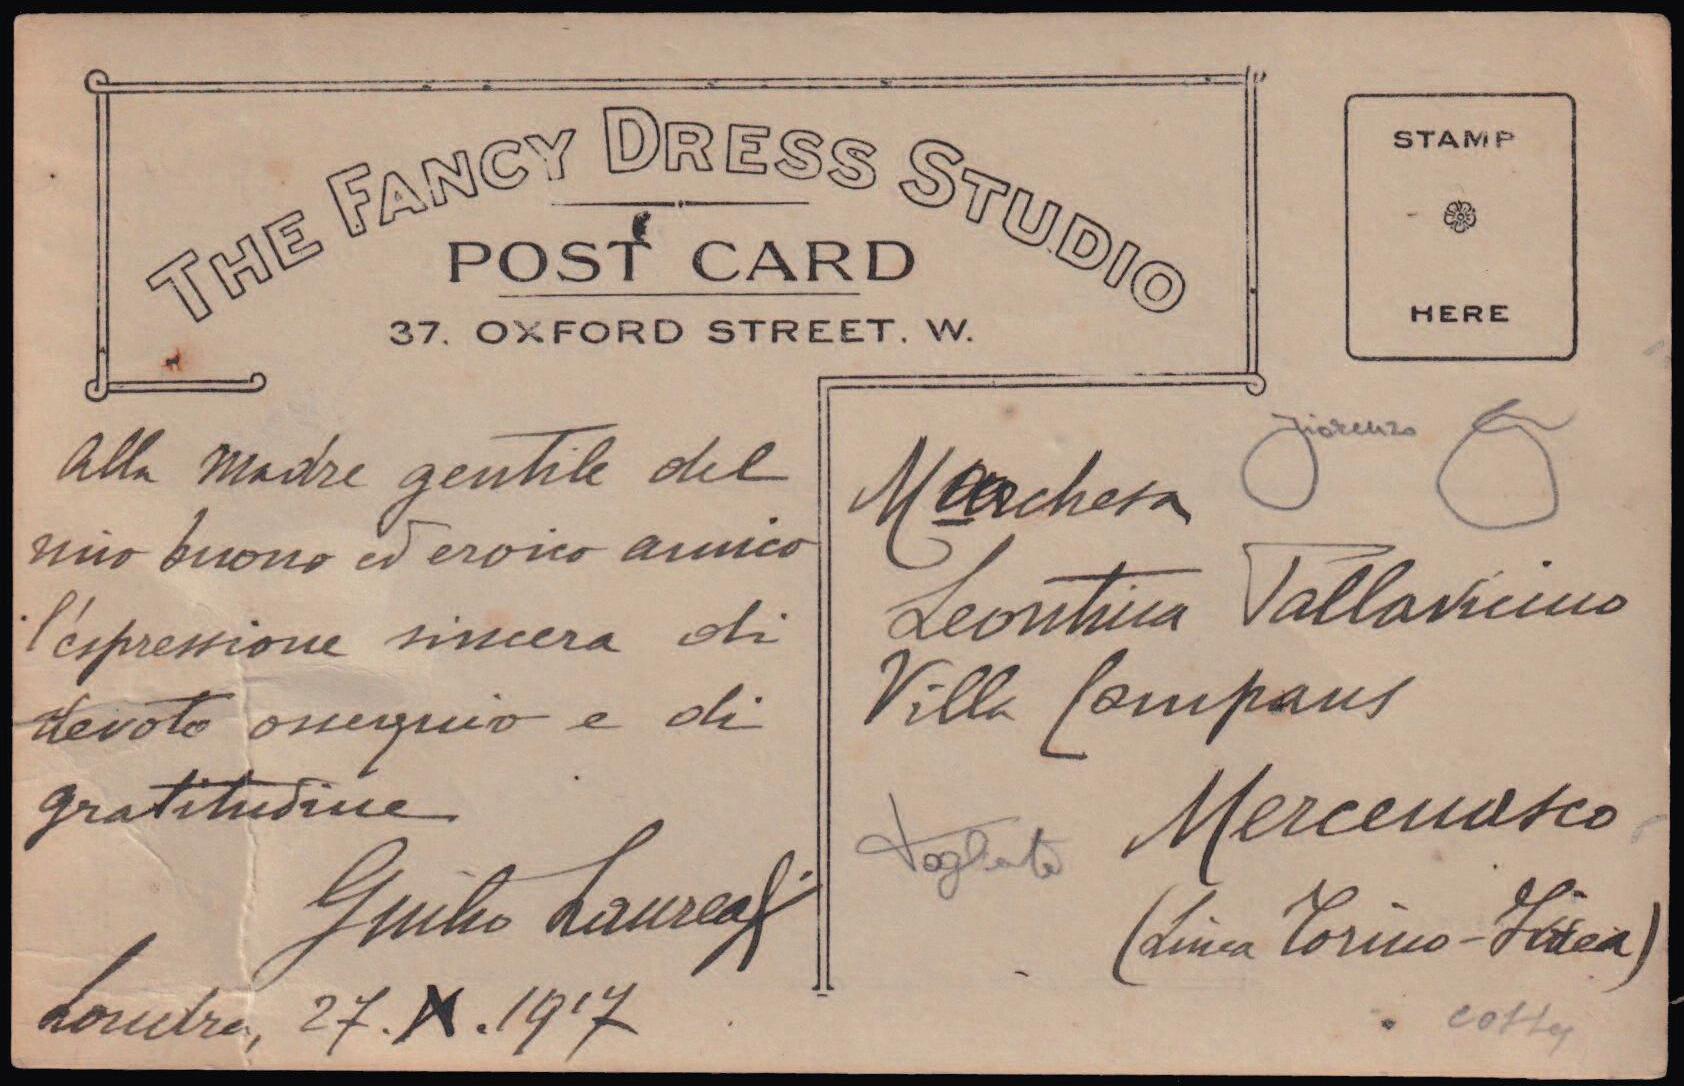 THE FANCY DRESS STUDIO
POST CARD
37. OXFORD STREET. W.
STAMP
HERE
Alla madre gentile del
mio buono ed eroico amico
l'espressione sincera di
devoto ossequio e di
gratitudine
Giulio
Londra, 27.X.1917
fiorenzo
Marchesa
Leontina Pallavicino
Villa Compans
Mercenasco
(Linea Torino-Ivrea)